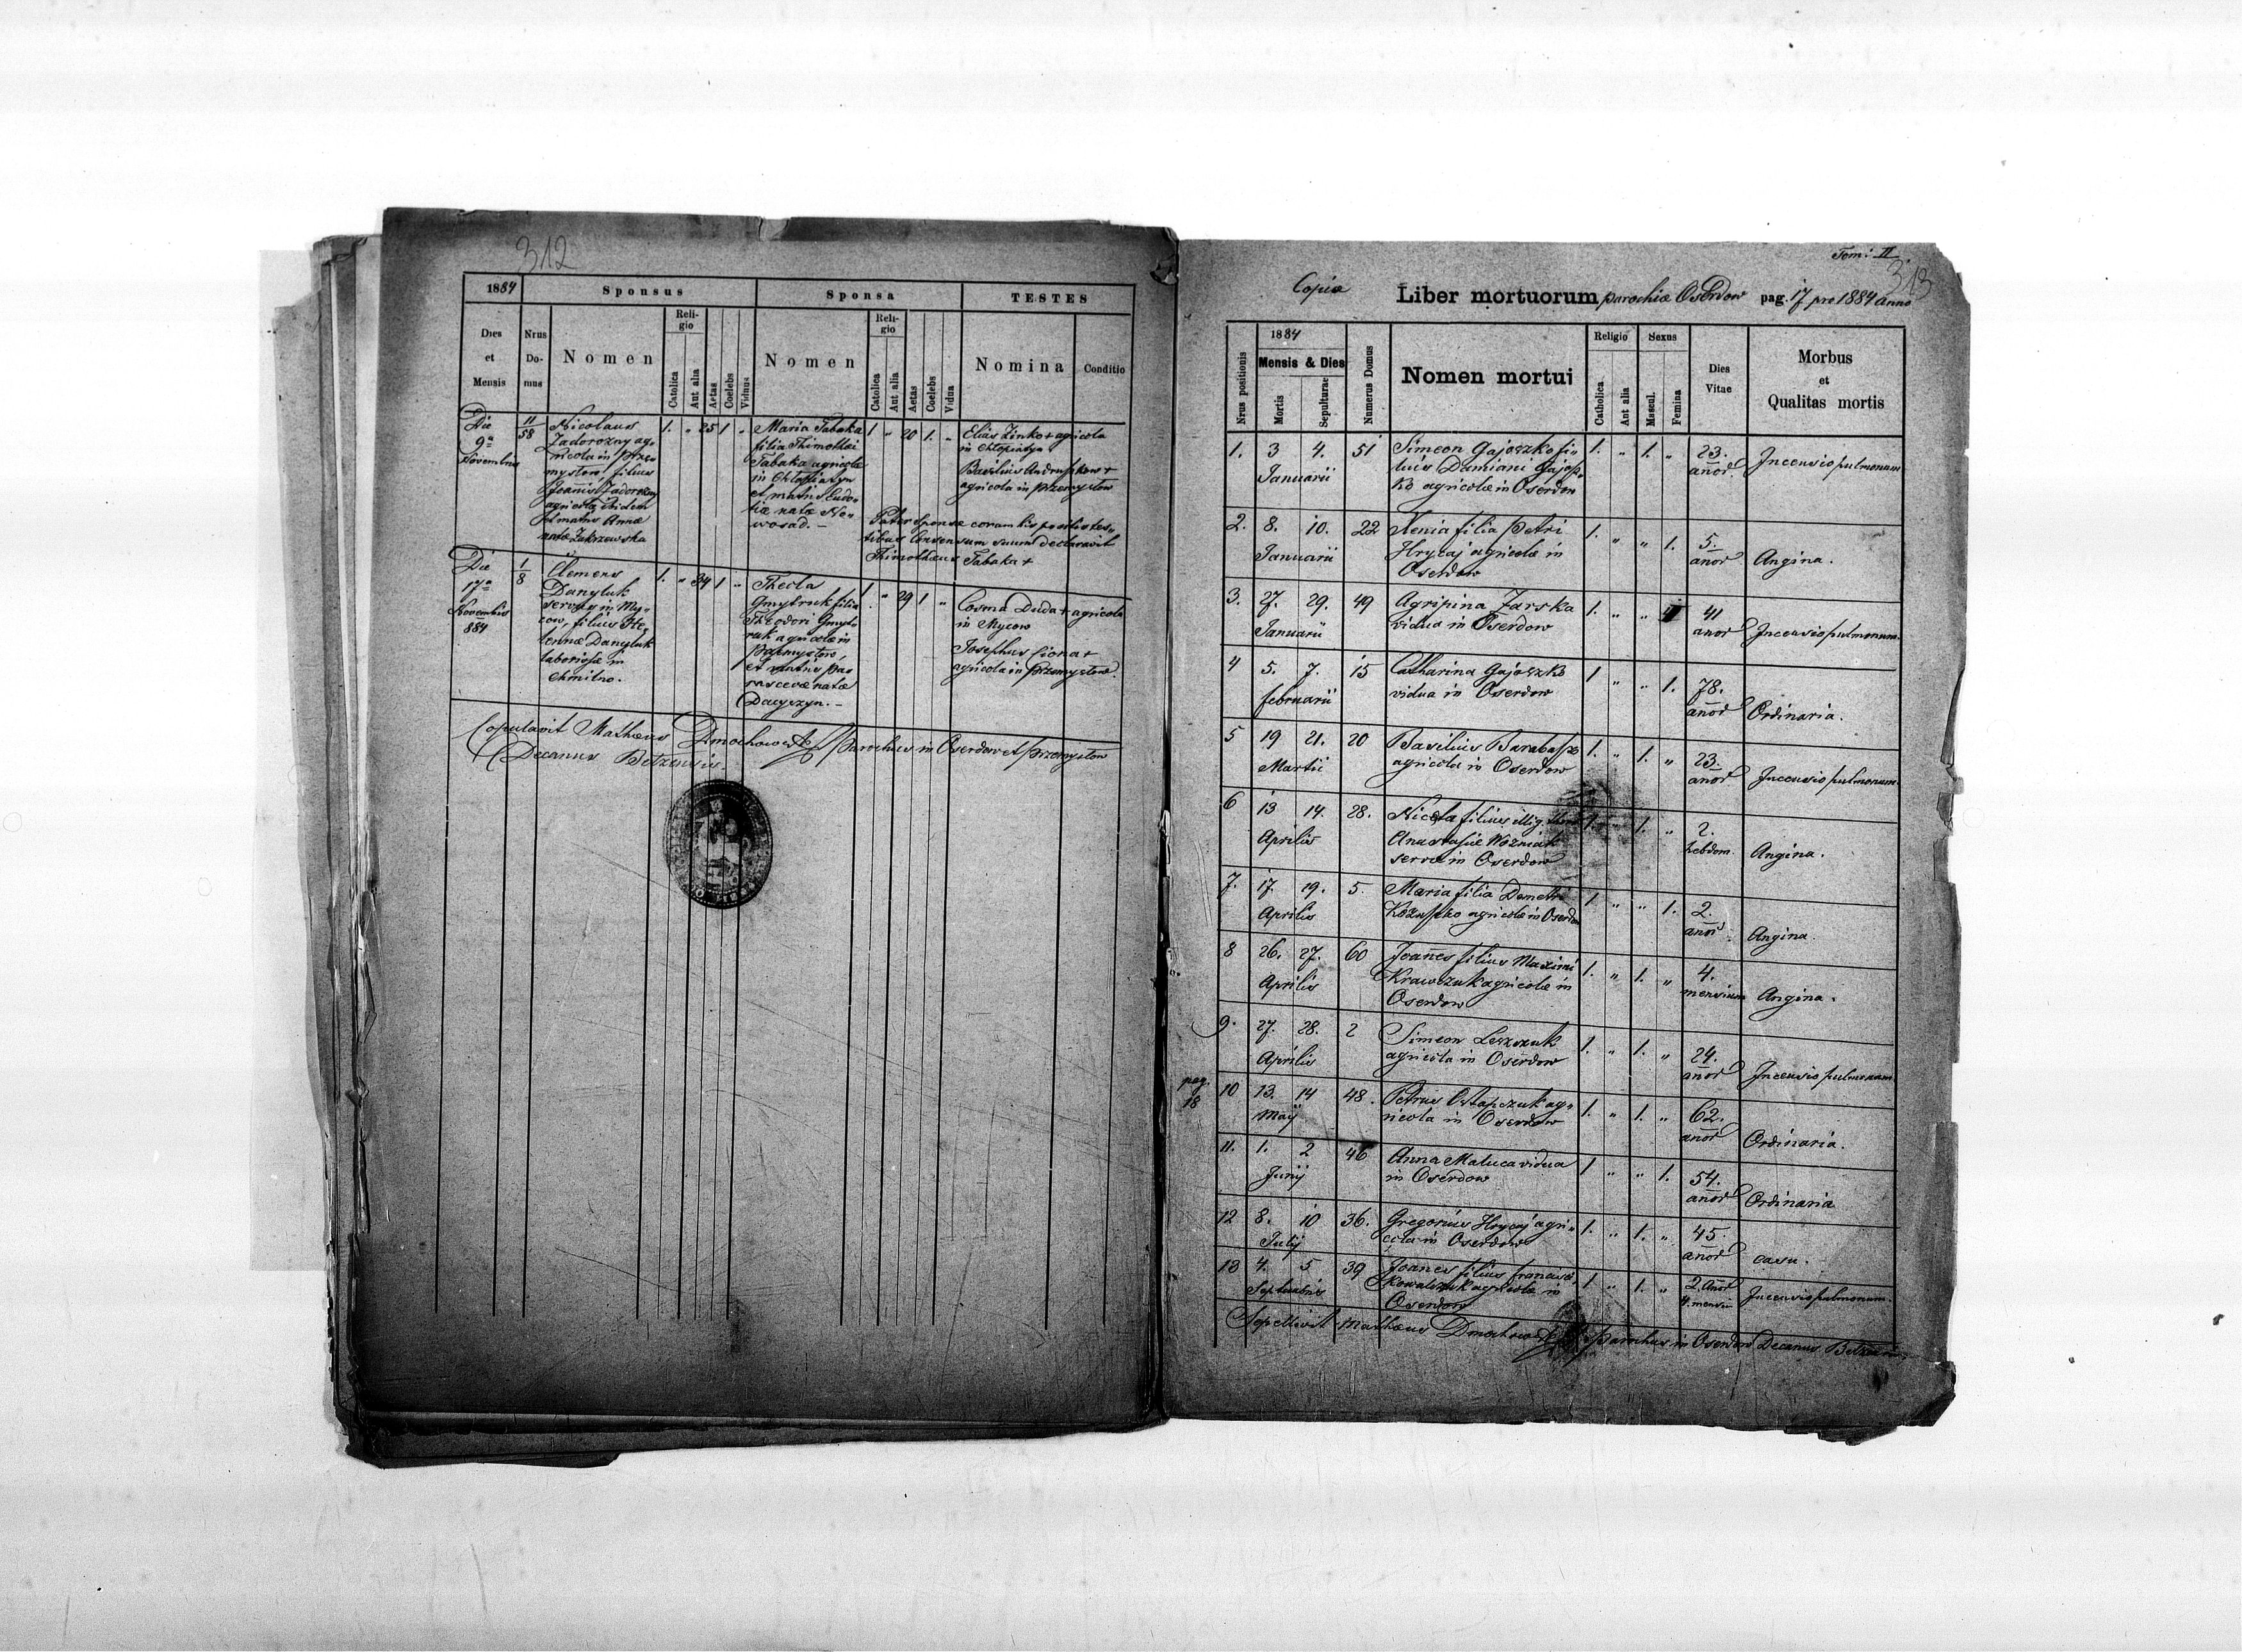 312
1884 Sponsus Sponsa TESTES
Dies et Mensis
Nrus Domus
Nomen
Religio
Catolica
Aut alia
Aetas
Coelebs
Viduus
Nomen
Religio
Catolica
Aut alia
Aetas
Coelebs
Vidua
Nomina
Conditio
Die
9ª
Novembris
11
58
Nicolaus
Zadorozny ag„
ricola in Prze„
mysłow filius
Joannis Zadorozny
agricolæ ibidem
et matris Annæ
natæ Zakrzewska
1. „ 25 1 „
Maria Tabaka
filia Thimothei
Tabaka agricolæ
in Chłopiatyn
et matris Eudo„
kiæ natæ No„
wosad. –
1 „ 20 1. „
Elias Zinko + agricola
in Chłopiatyn
Basilius Andruszkow +
agricola in Przemysłow
Pater sponsæ coram his præstis tes„
tibus consensum suum declaravit
Thimotheus Tabaka +
Die
17ª
Novembris
884
1
8
Clemens
Danyluk
servus in My„
cow, filius He„
lennæ Danyluk
laboriosæ in
Chmilno.
1. „ 34 1 „
Thecla
Gmytruk filia
Theodori Gmyt„
ruk agricolæ in
Przemysłow,
et matris Pa„
rascevæ natæ
Daczyszyn. –
1 „ 29 1 „
Cosma Duda + agricola
in Mycow
Josephus +
agricola in Przemysłow.
Copulavit Mathæus Dmochowski Parochus in Oserdow et Przemysłow
Decanus Bełzensis.
Tom: II.
313
Copia Liber mortuorum parochiæ Oserdow pag. 17 pro 1884 anno
Nrus positionis
1884
Mensis & Dies
Mortis
Sepulturae
Numerus Domus
Nomen mortui
Religio
Catholica
Aut alia
Sexus
Mascul.
Femina
Dies Vitae
Morbus
et
Qualitas mortis
1. 3 4. 51 Simeon Gajoszko fi„ 1. „ 1. „ 23.
Januarii lius Damiani Gajosz„ anor Incensio pulmonum
ko agricolæ in Oserdow
2. 8. 10. 22 Xenia filia Petri 1. „ „ 1. 5.
Januarii Hrycaj agricolæ in anor Angina.
Oserdow
3. 27. 29. 49 Agripina Zarska 1. „ „ 1 41
Januarii vidua in Oserdow anor Incensio pulmonum.
4 5. 7. 15 Catharina Gajoszko 1 „ „ 1. 78.
februarii vidua in Oserdow anor Ordinaria.
5 19 21. 20 Basilius Barabasz 1. „ 1. „ 23.
Martii agricola in Oserdow anor Incensio pulmonum.
6 13 14. 28. Niceta filius illeg. 1. „ 1. „ 2.
Aprilis Anastasiæ Wozniak hebdom. Angina.
servæ in Oserdow
7. 17. 19. 5. Maria filia Demetri 1 „ „ 1. 2.
Aprilis Kożuszko agricolæ in Oserdow anor Angina.
8 26. 27. 60 Joannes filius Maximi 1. „ 1. „ 4.
Aprilis Krawczuk agricolæ in mensium Angina.
Oserdow
9. 27. 28. 2 Simeon Leszczuk 1. „ 1. „ 24.
Aprilis agricola in Oserdow anor Incensio pulmonum.
pag.
18
10 13. 14 48. Petrus Ostapczuk ag„ 1. „ 1. „ 62.
Maij ricola in Oserdow anor Ordinaria.
11. 1. 2 46 Anna Matuca vidua 1 „ „ 1. 54.
Junij in Oserdow anor Ordinaria
12 8. 10 36. Gregorius Hrycaj agri„ 1. „ 1. „ 45.
Julij cola in Oserdow anor casu.
13 4. 5 39 Joanes filius francisci 1 „ 1. „ 2 anor
Septembris Kowalczuk agricolæ in 4. mensiu Incensio pulmonum.
Oserdow
Sepelivit Mathæus Dmochowski Parochus in Oserdow Decanus Bełzensis